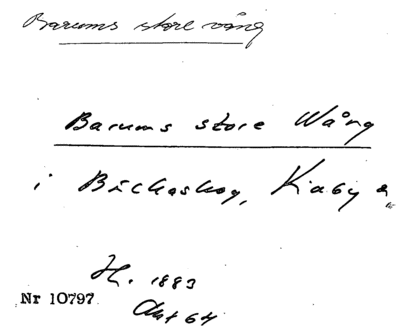 Barums store vång
Barums store Wång
i Bäckaskog, Kiaby
H. 1883
Nr 10797
Akt 64